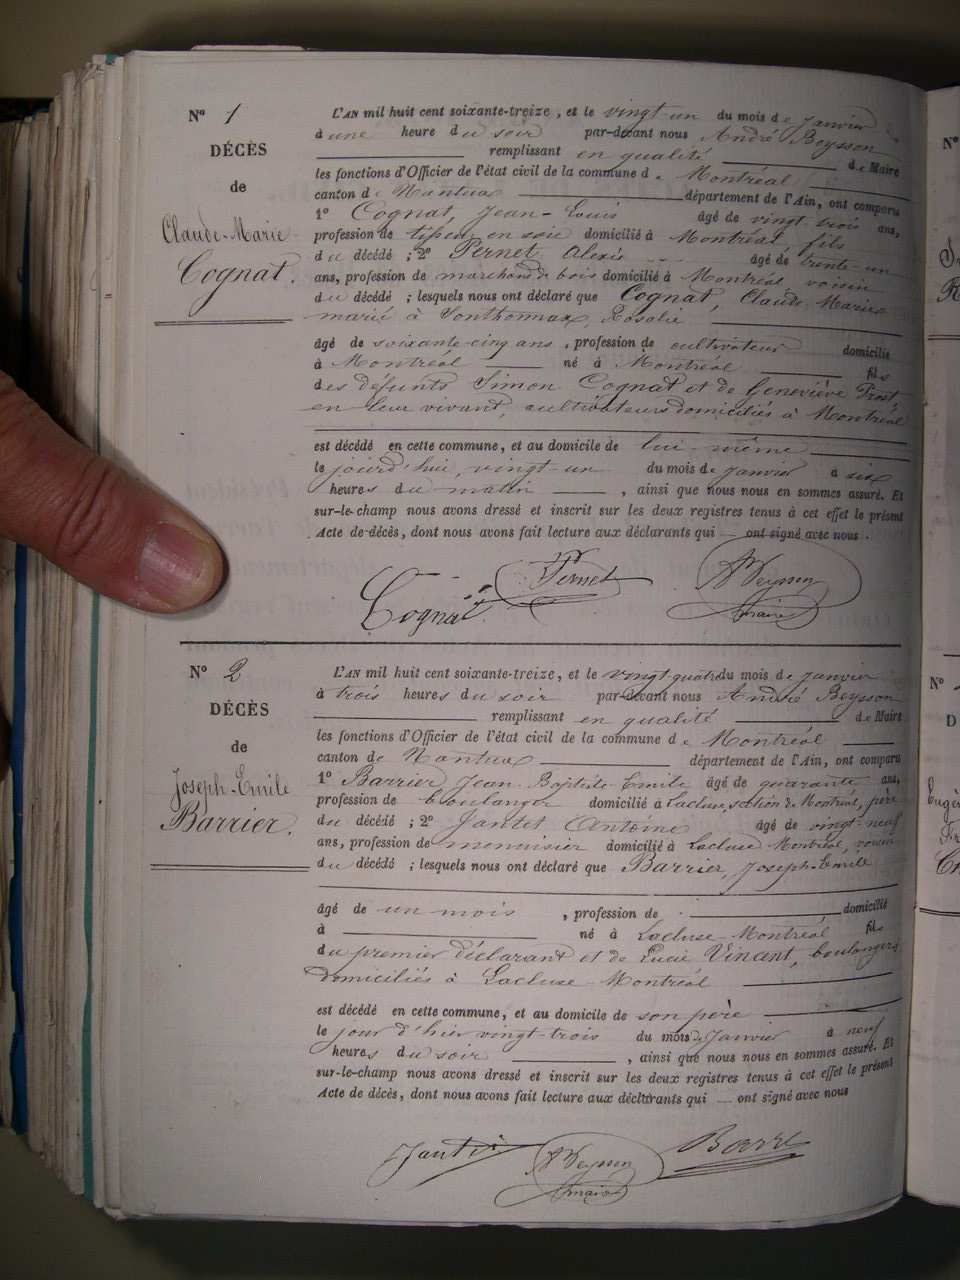 N° 1
DÉCÈS
de
Claude-Marie
Cognat.
L'AN mil huit cent soixante-treize, et le vingt-un du mois de Janvier
à une heure du soir par-devant nous André Beysson
remplissant en qualité de Maire
les fonctions d'Officier de l'état civil de la commune de Montréal
canton de Nantua département de l'Ain, ont comparu
1° Cognat, Jean-Louis âgé de vingt trois ans,
profession de tisseur en soie domicilié à Montréal, fils
du décédé ; 2° Pernet Alexis âgé de trente-un
ans, profession de marchand de bois domicilié à Montréal, voisin
du décédé ; lesquels nous ont déclaré que Cognat, Claude-Marie
marié à Sonthonnax, Rosalie
âgé de soixante-cinq ans, profession de cultivateur domicilié
à Montréal né à Montréal fils
des défunts Simon Cognat et de Geneviève Prost,
en leur vivant, cultivateurs domiciliés à Montréal
est décédé en cette commune, et au domicile de lui-même
le jourd'hui, vingt-un du mois de janvier à six
heures du matin , ainsi que nous nous en sommes assuré. Et
sur-le-champ nous avons dressé et inscrit sur les deux registres tenus à cet effet le présent
Acte de décès, dont nous avons fait lecture aux déclarants qui — ont signé avec nous .
Cognat Pernet ABeysson
maire
N° 2
DÉCÈS
de
Joseph-Emile
Barrier.
L'AN mil huit cent soixante-treize, et le vingt quatre du mois de janvier
à trois heures du soir par-devant nous André Beysson
remplissant en qualité de Maire
les fonctions d'Officier de l'état civil de la commune de Montréal
canton de Nantua département de l'Ain, ont comparu
1° Barrier Jean Baptiste Emile âgé de quarante ans,
profession de boulanger domicilié à Lacluse, section de Montréal, père
du décédé ; 2° Jantet Antoine âgé de vingt-neuf
ans, profession de menuisier domicilié à Lacluse-Montréal, voisin
du décédé ; lesquels nous ont déclaré que Barrier, Joseph-Emile
âgé de un mois , profession de domicilié
à né à Lacluse-Montréal fils
du premier déclarant et de Lucie Vincent, boulangers
domiciliés à Lacluse-Montréal
est décédé en cette commune, et au domicile de son père
le jour d'hier vingt-trois du mois de Janvier à neuf
heures du soir , ainsi que nous nous en sommes assuré. Et
sur-le-champ nous avons dressé et inscrit sur les deux registres tenus à cet effet le présent
Acte de décès, dont nous avons fait lecture aux déclarants qui — ont signé avec nous
ABeysson
maire
N°
N°
D